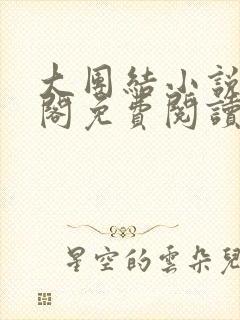 大團結小說
閣免費閱讀
星空的雲朵兒